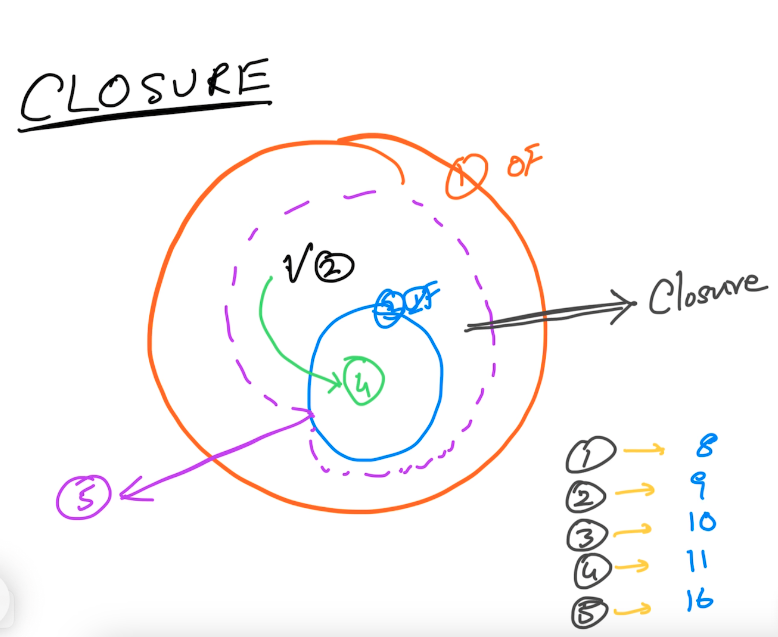 CLOSURE
① OF
V②
③ IF
Closure
④
⑤
① → 8
② → 9
③ → 10
④ → 11
⑤ → 16